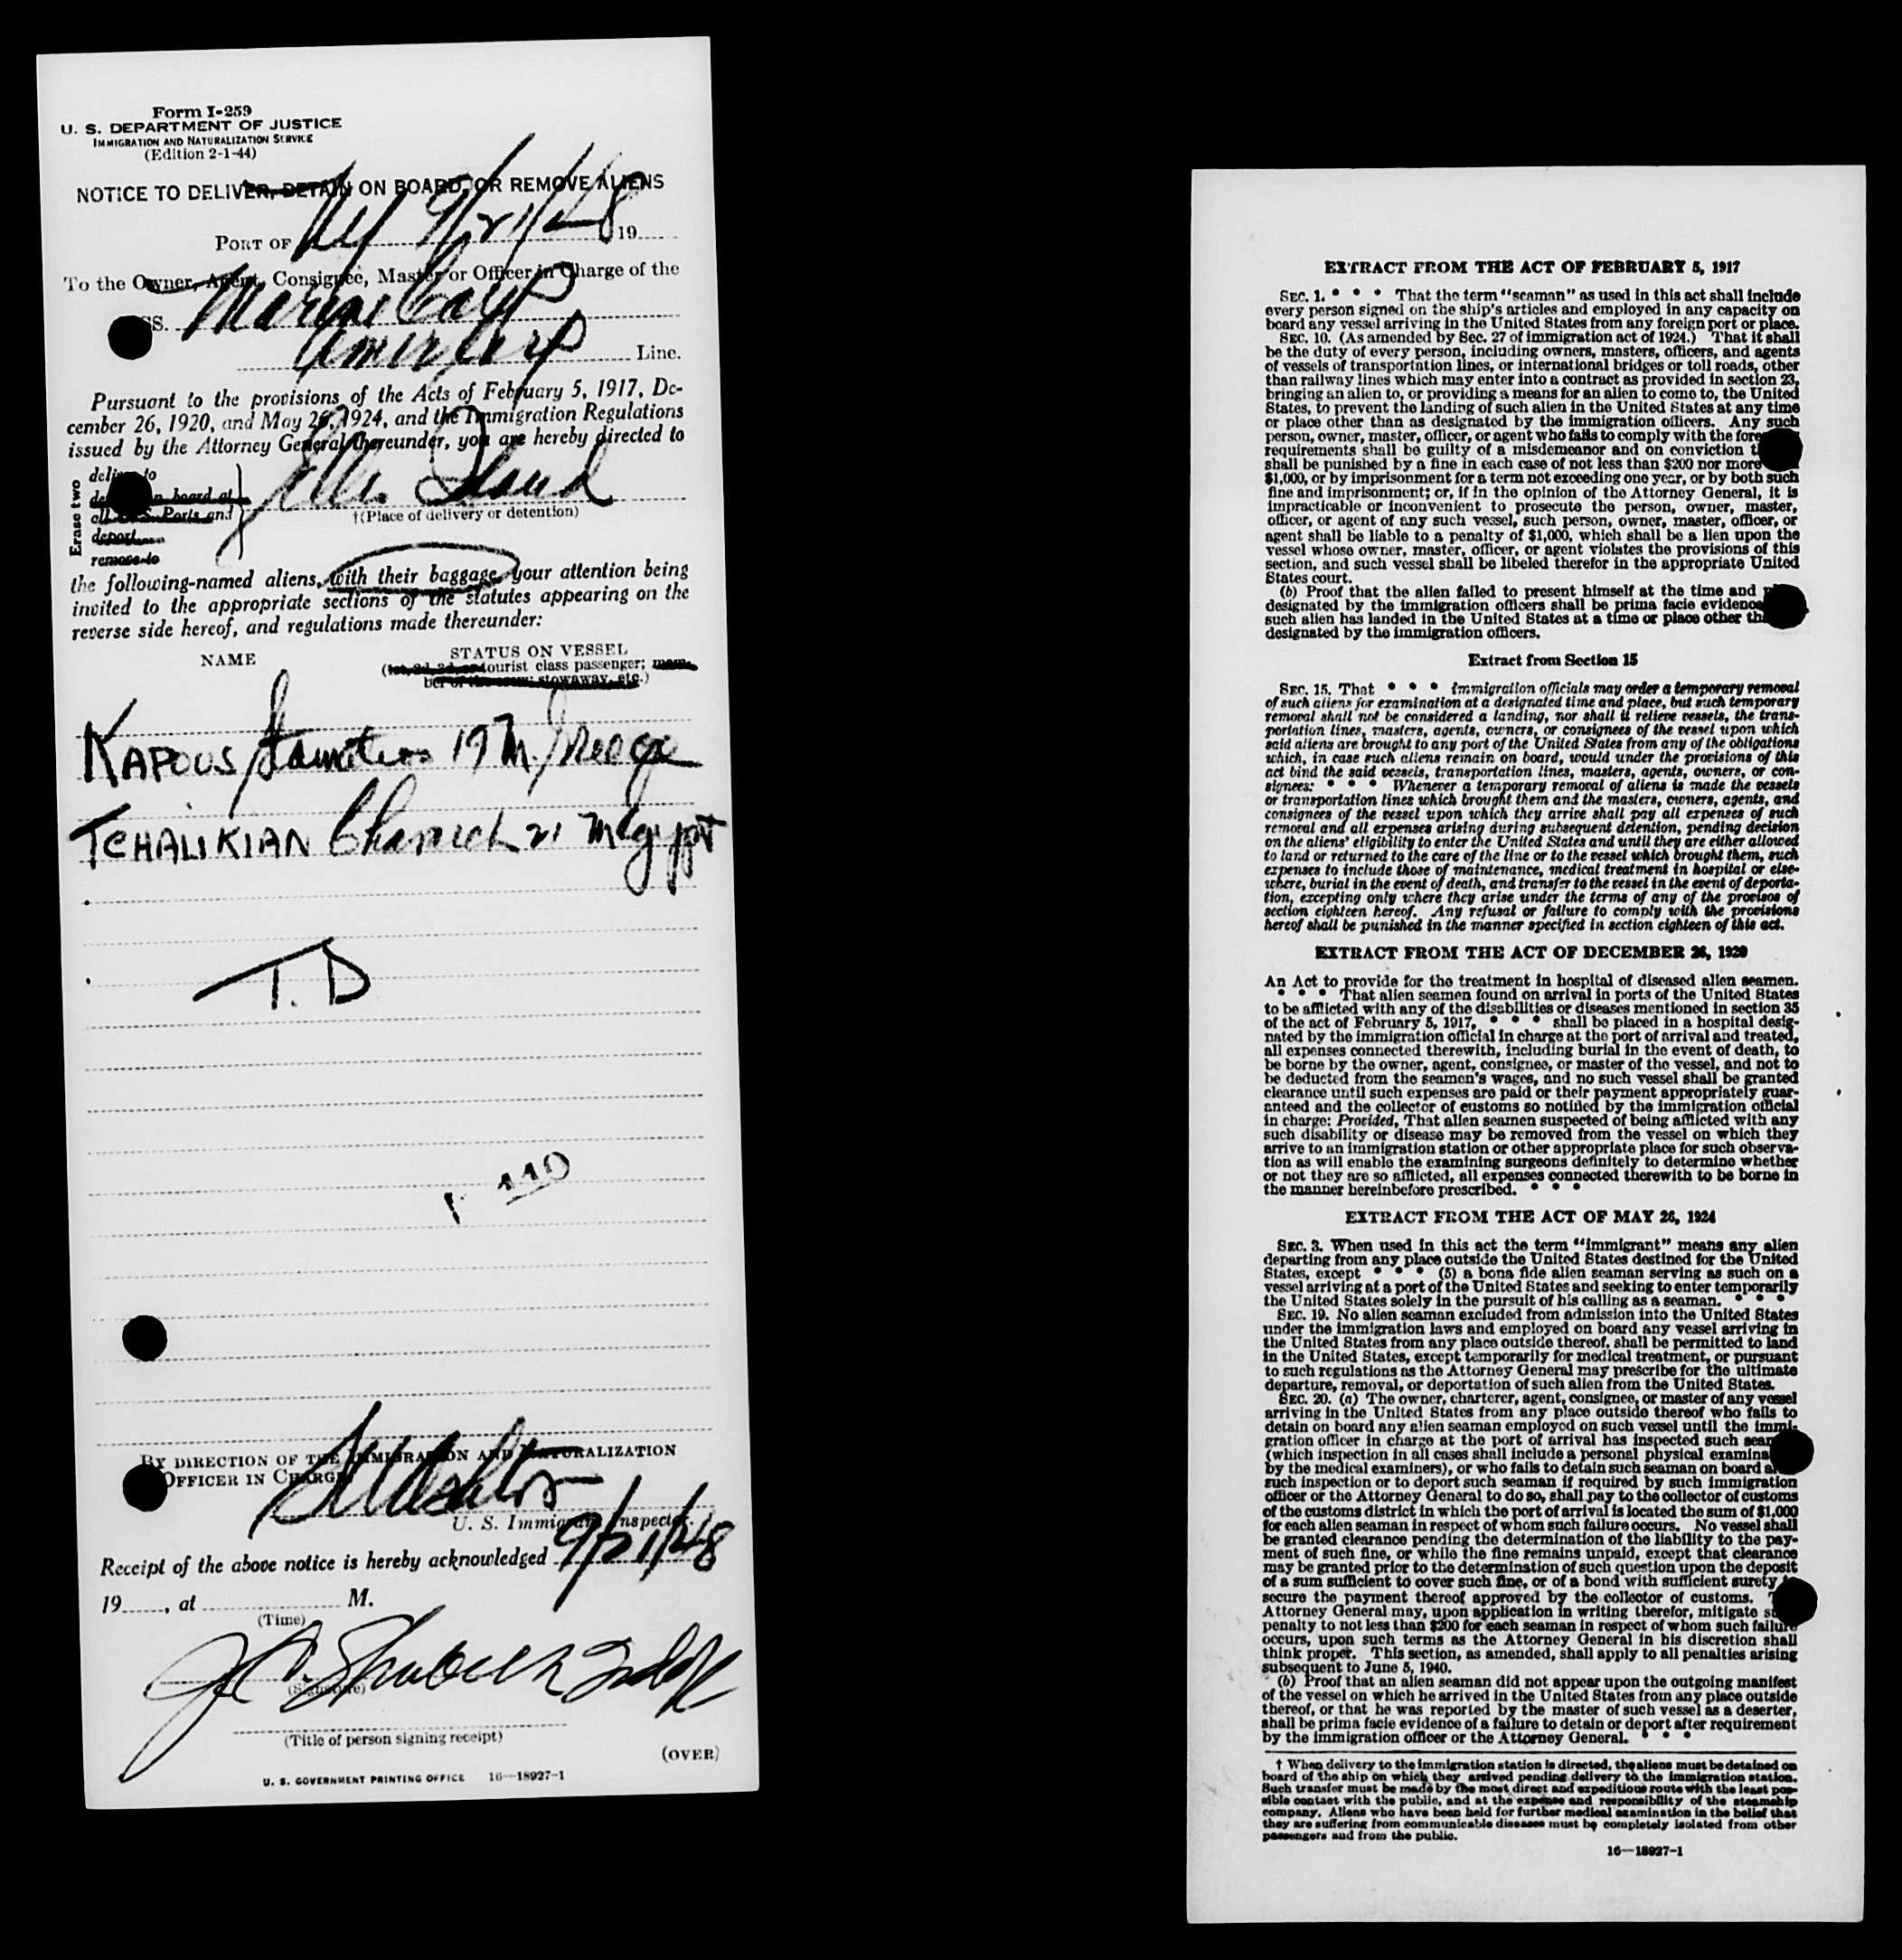 Form I-259
U. S. DEPARTMENT OF JUSTICE
IMMIGRATION AND NATURALIZATION SERVICE
(Edition 2-1-44)
NOTICE TO DELIVER, DETAIN ON BOARD, OR REMOVE ALIENS
PORT OF NY 9/21/48 19
To the Owner, Agent, Consignee, Master or Officer in Charge of the
SS. Marine Carp
Line.
Pursuant to the provisions of the Acts of February 5, 1917, De-
cember 26, 1920, and May 26, 1924, and the Immigration Regulations
issued by the Attorney General thereunder, you are hereby directed to
Erase two
deliver to
on board at
all U. S. Ports and
deport
remove to
Ellis Island
†(Place of delivery or detention)
the following-named aliens, with their baggage, your attention being
invited to the appropriate sections of the statutes appearing on the
reverse side hereof, and regulations made thereunder:
NAME
STATUS ON VESSEL
(1st, 2d, 3d, or tourist class passenger; mem-
ber of the crew; stowaway, etc.)
KAPOUS 19 M. Greece
TCHALIKIAN 21 M Egypt
T. D
110
BY DIRECTION OF THE IMMIGRATION AND NATURALIZATION
OFFICER IN CHARGE
U. S. Immigrant Inspector.
Receipt of the above notice is hereby acknowledged 9/21/48
19, at M.
(Time)
(Signature)
(Title of person signing receipt)
(OVER)
U. S. GOVERNMENT PRINTING OFFICE 16—18927-1
EXTRACT FROM THE ACT OF FEBRUARY 5, 1917
SEC. 1. * * * That the term "seaman" as used in this act shall include
every person signed on the ship's articles and employed in any capacity on
board any vessel arriving in the United States from any foreign port or place.
SEC. 10. (As amended by Sec. 27 of immigration act of 1924.) That it shall
be the duty of every person, including owners, masters, officers, and agents
of vessels of transportation lines, or international bridges or toll roads, other
than railway lines which may enter into a contract as provided in section 23,
bringing an alien to, or providing a means for an alien to come to, the United
States, to prevent the landing of such alien in the United States at any time
or place other than as designated by the immigration officers. Any such
person, owner, master, officer, or agent who fails to comply with the fore
requirements shall be guilty of a misdemeanor and on conviction
shall be punished by a fine in each case of not less than $200 nor more
$1,000, or by imprisonment for a term not exceeding one year, or by both such
fine and imprisonment; or, if in the opinion of the Attorney General, it is
impracticable or inconvenient to prosecute the person, owner, master,
officer, or agent of any such vessel, such person, owner, master, officer, or
agent shall be liable to a penalty of $1,000, which shall be a lien upon the
vessel whose owner, master, officer, or agent violates the provisions of this
section, and such vessel shall be libeled therefor in the appropriate United
States court.
(b) Proof that the alien failed to present himself at the time and
designated by the immigration officers shall be prima facie evidence
such alien has landed in the United States at a time or place other
designated by the immigration officers.
Extract from Section 15
SEC. 15. That * * * immigration officials may order a temporary removal
of such aliens for examination at a designated time and place, but such temporary
removal shall not be considered a landing, nor shall it relieve vessels, the trans-
portation lines, masters, agents, owners, or consignees of the vessel upon which
said aliens are brought to any port of the United States from any of the obligations
which, in case such aliens remain on board, would under the provisions of this
act bind the said vessels, transportation lines, masters, agents, owners, or con-
signees: * * * Whenever a temporary removal of aliens is made the vessels
or transportation lines which brought them and the masters, owners, agents, and
consignees of the vessel upon which they arrive shall pay all expenses of such
removal and all expenses arising during subsequent detention, pending decision
on the aliens' eligibility to enter the United States and until they are either allowed
to land or returned to the care of the line or to the vessel which brought them, such
expenses to include those of maintenance, medical treatment in hospital or else-
where, burial in the event of death, and transfer to the vessel in the event of deporta-
tion, excepting only where they arise under the terms of any of the provisos of
section eighteen hereof. Any refusal or failure to comply with the provisions
hereof shall be punished in the manner specified in section eighteen of this act.
EXTRACT FROM THE ACT OF DECEMBER 26, 1920
An Act to provide for the treatment in hospital of diseased alien seamen.
* * * That alien seamen found on arrival in ports of the United States
to be afflicted with any of the disabilities or diseases mentioned in section 35
of the act of February 5, 1917, * * * shall be placed in a hospital desig-
nated by the immigration official in charge at the port of arrival and treated,
all expenses connected therewith, including burial in the event of death, to
be borne by the owner, agent, consignee, or master of the vessel, and not to
be deducted from the seamen's wages, and no such vessel shall be granted
clearance until such expenses are paid or their payment appropriately guar-
anteed and the collector of customs so notified by the immigration official
in charge: Provided, That alien seamen suspected of being afflicted with any
such disability or disease may be removed from the vessel on which they
arrive to an immigration station or other appropriate place for such observa-
tion as will enable the examining surgeons definitely to determine whether
or not they are so afflicted, all expenses connected therewith to be borne in
the manner hereinbefore prescribed. * * *
EXTRACT FROM THE ACT OF MAY 26, 1924
SEC. 3. When used in this act the term "immigrant" means any alien
departing from any place outside the United States destined for the United
States, except * * * (5) a bona fide alien seaman serving as such on a
vessel arriving at a port of the United States and seeking to enter temporarily
the United States solely in the pursuit of his calling as a seaman. * * *
SEC. 19. No alien seaman excluded from admission into the United States
under the immigration laws and employed on board any vessel arriving in
the United States from any place outside thereof, shall be permitted to land
in the United States, except temporarily for medical treatment, or pursuant
to such regulations as the Attorney General may prescribe for the ultimate
departure, removal, or deportation of such alien from the United States.
SEC. 20. (a) The owner, charterer, agent, consignee, or master of any vessel
arriving in the United States from any place outside thereof who fails to
detain on board any alien seaman employed on such vessel until the immi-
gration officer in charge at the port of arrival has inspected such
(which inspection in all cases shall include a personal physical
by the medical examiners), or who fails to detain such seaman on board
such inspection or to deport such seaman if required by such immigration
officer or the Attorney General to do so, shall pay to the collector of customs
of the customs district in which the port of arrival is located the sum of $1,000
for each alien seaman in respect of whom such failure occurs. No vessel shall
be granted clearance pending the determination of the liability to the pay-
ment of such fine, or while the fine remains unpaid, except that clearance
may be granted prior to the determination of such question upon the deposit
of a sum sufficient to cover such fine, or of a bond with sufficient surety to
secure the payment thereof approved by the collector of customs.
Attorney General may, upon application in writing therefor, mitigate
penalty to not less than $200 for each seaman in respect of whom such failure
occurs, upon such terms as the Attorney General in his discretion shall
think proper. This section, as amended, shall apply to all penalties arising
subsequent to June 5, 1940.
(b) Proof that an alien seaman did not appear upon the outgoing manifest
of the vessel on which he arrived in the United States from any place outside
thereof, or that he was reported by the master of such vessel as a deserter,
shall be prima facie evidence of a failure to detain or deport after requirement
by the immigration officer or the Attorney General. * * *
† When delivery to the immigration station is directed, the aliens must be detained on
board of the ship on which they arrived pending delivery to the immigration station.
Such transfer must be made by the most direct and expeditious route with the least pos-
sible contact with the public, and at the expense and responsibility of the steamship
company. Aliens who have been held for further medical examination in the belief that
they are suffering from communicable diseases must be completely isolated from other
passengers and from the public.
16—18927-1